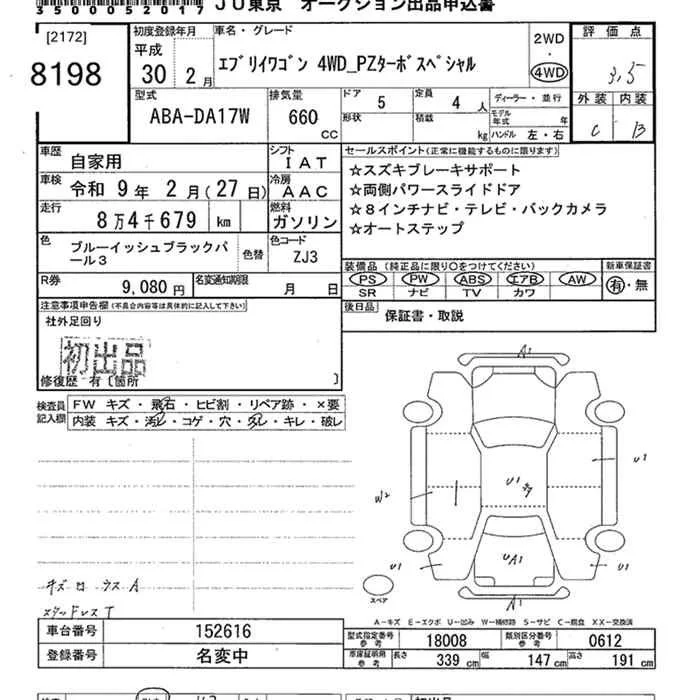 350052017 JU東京 オークション出品申込書
[2172]
8198
初度登録年月
平成
30年 2月
車名・グレード
エブリイワゴン 4WD_PZターボスペシャル
2WD
・
4WD
評価点
3.5
型式
ABA-DA17W
排気量
660
CC
ドア 5
定員 4 人
形状
積載 kg
ディーラー・並行
モデル年式 年
ハンドル 左・右
外装 内装
C B
車歴
自家用
シフト
IAT
車検
令和 9年 2月(27日)
冷房
AAC
走行
8万4千679 km
燃料
ガソリン
色
ブルーイッシュブラックパール3
色替
色コード
ZJ3
R券
9,080円
名変通知期限
月 日
セールスポイント(正常に機能するものに限ります)
☆スズキブレーキサポート
☆両側パワースライドドア
☆8インチナビ・テレビ・バックカメラ
☆オートステップ
装備品(純正品に限り○をつけてください)
新車保証書
PS PW ABS エアB AW
SR ナビ TV カワ
有・無
後日品
保証書・取説
注意事項申告欄(不具合内容等は具体的に記入して下さい)
社外足回り
初出品
修復歴 有〔箇所 〕
検査員記入欄
FW キズ・飛石・ヒビ割・リペア跡・×要
内装 キズ・汚レ・コゲ・穴・スレ・キレ・破レ
A1
U1
U1
W2
UA1
U1
U1
A1
スペア
キズ
スタッドレスT
A-キズ E-エクボ U-凹み W-補修跡 S-サビ C-腐食 XX-交換済
車台番号
152616
登録番号
名変中
型式指定番号
参考
18008
類別区分番号
参考
0612
車庫証明用
参考
長さ 339 cm
幅 147 cm
高さ 191 cm